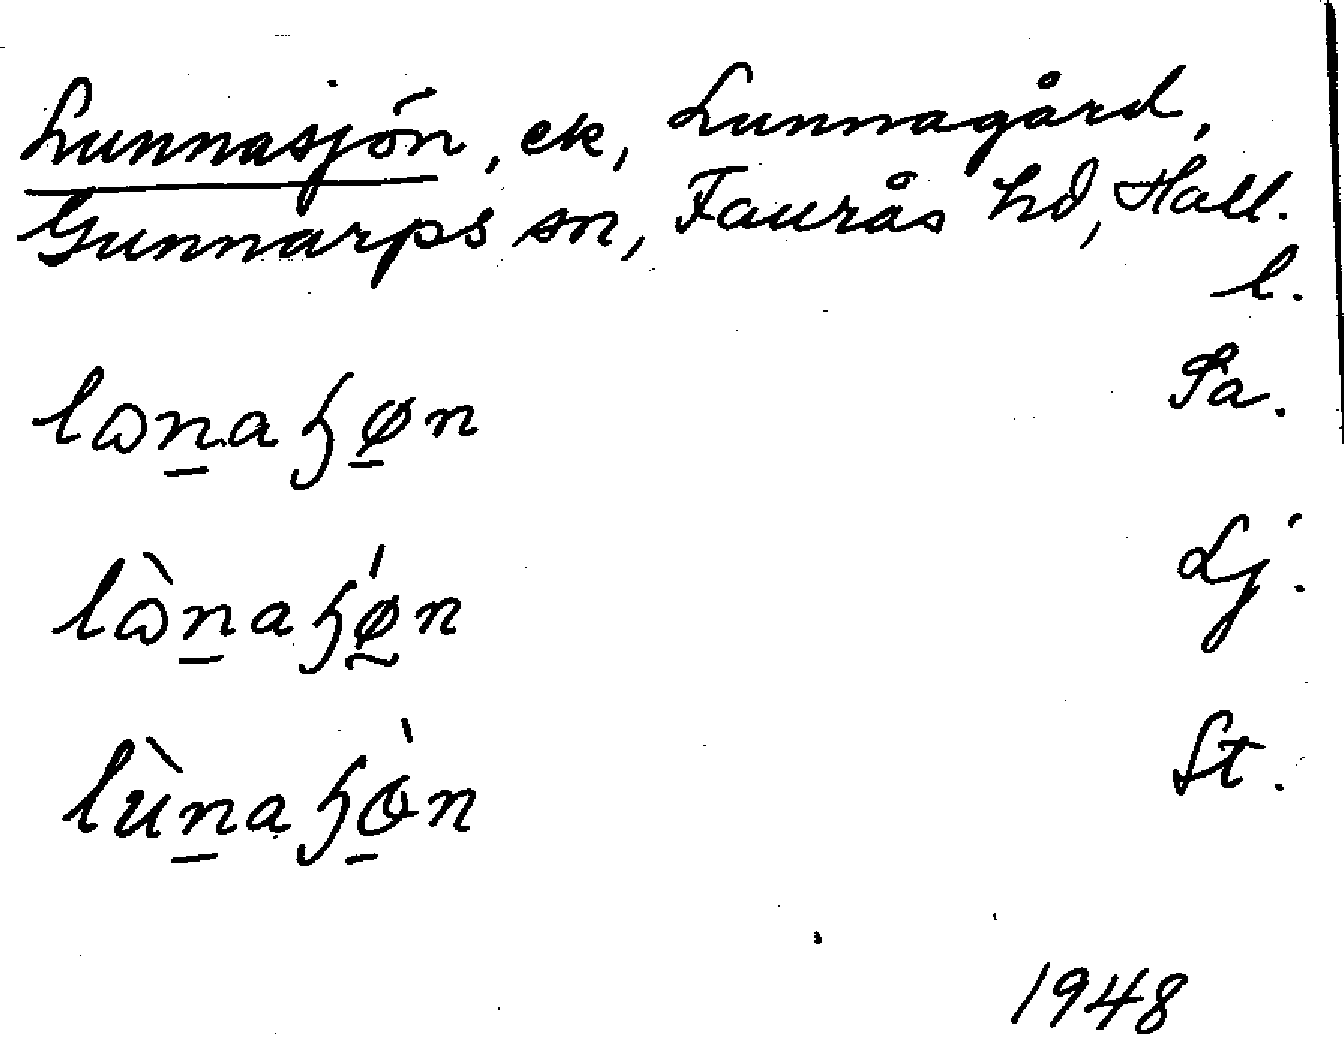 Lunnasjön, ek, Lunnagård,
Gunnarps sn, Faurås hd, Hall.
l.
lɷn̲aɧø̲n Pa.
lɷ̀n̲aɧǿ̰n Lj.
lùn̲aɧò̲n St.
1948